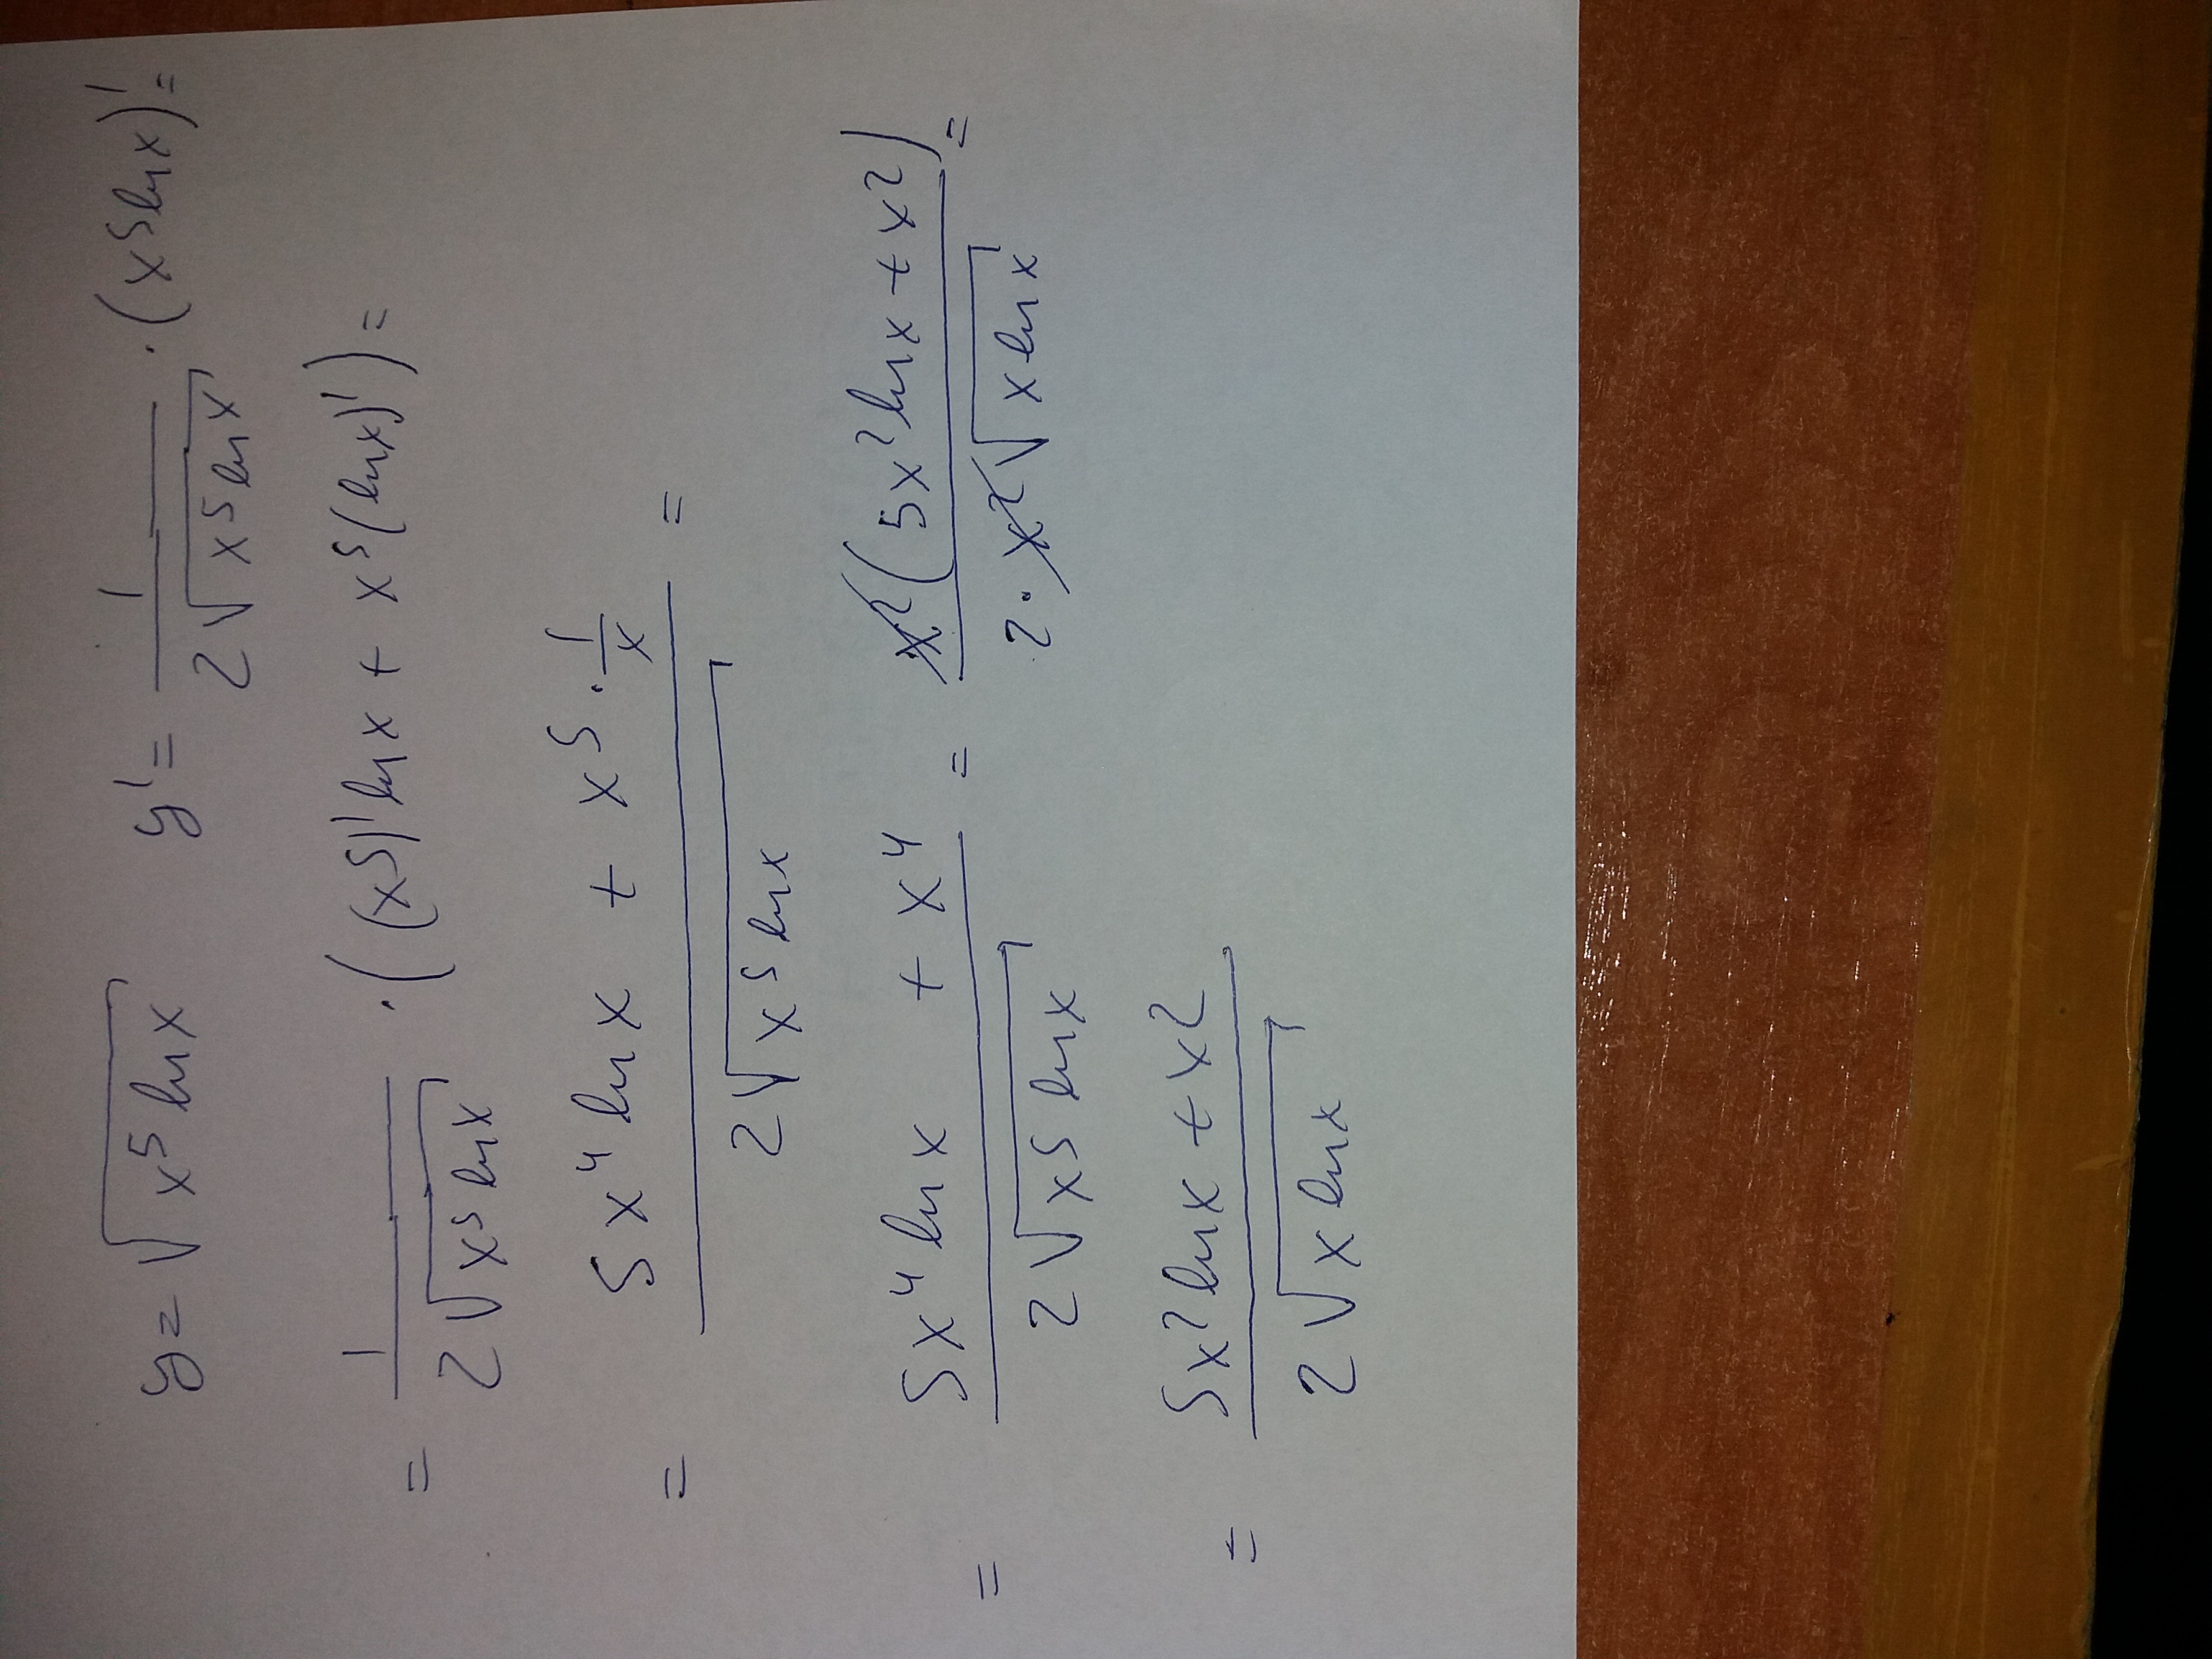 y = √(x⁵ ln x)   y' = 1/(2√(x⁵ ln x)) · (x⁵ ln x)' =
= 1/(2√(x⁵ ln x)) · ((x⁵)' ln x + x⁵(ln x)') =
= (5x⁴ ln x + x⁵ · 1/x)/(2√(x⁵ ln x)) =
= (5x⁴ ln x + x⁴)/(2√(x⁵ ln x)) = x²(5x² ln x + x²)/(2 · x²√(x ln x)) =
= (5x² ln x + x²)/(2√(x ln x))